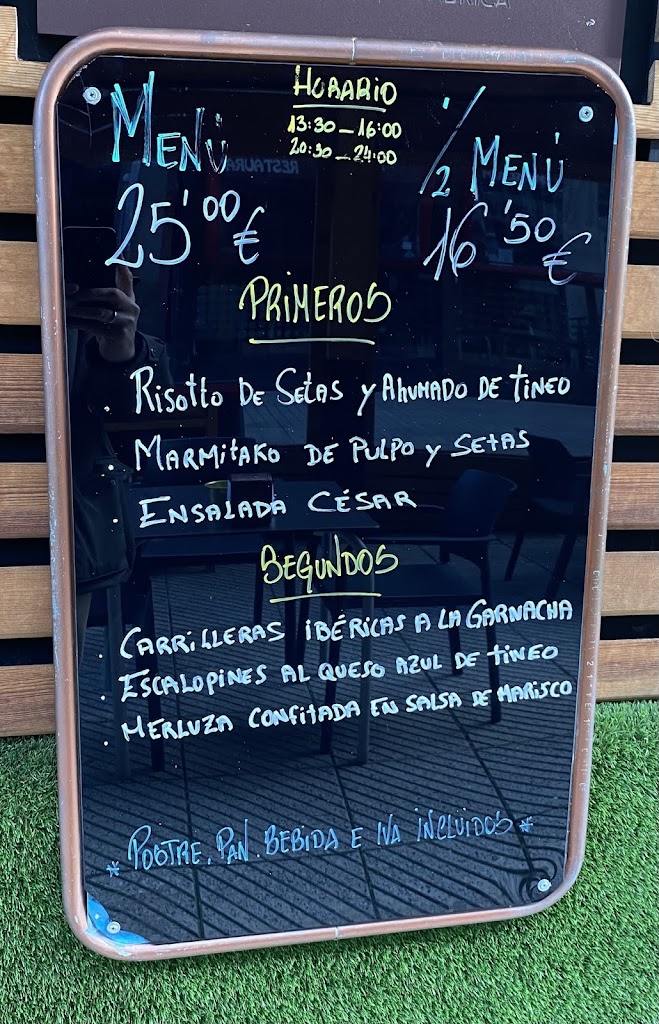 HORARIO
13:30 — 16:00
20:30 — 24:00
MENÚ
25'00 €
1/2 MENÚ
16'50 €
PRIMEROS
. RISOTTO DE SETAS Y AHUMADO DE TINEO
. MARMITAKO DE PULPO Y SETAS
. ENSALADA CÉSAR
SEGUNDOS
. CARRILLERAS IBÉRICAS A LA GARNACHA
. ESCALOPINES AL QUESO AZUL DE TINEO
. MERLUZA CONFITADA EN SALSA DE MARISCO
* POSTRE, PAN. BEBIDA E IVA INCLUIDOS *